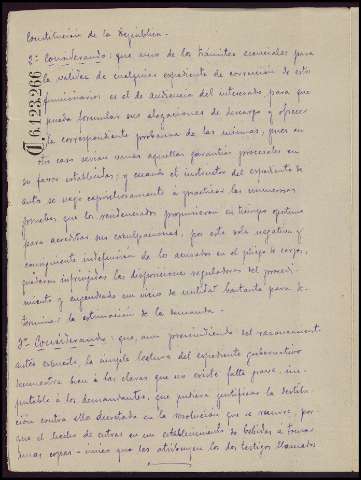 Constitución de la República.-
2º Considerando: que uno de los trámites esenciales para
la validez de cualquier expediente de corrección de estos
funcionarios es el de audiencia del interesado para que
pueda formular sus alegaciones de descargo y ofrecer
la correspondiente probanza de las mismas, pues en
otro caso serían vanas aquellas garantías procesales en
su favor establecidas; y cuando el instructor del expediente de
autos se negó expresivamente á practicar las numerosas
pruebas que los rendenciados propusieron en tiempo oportuno
para acreditar sus exculpaciones, por esta sola negativa y
consiguiente indefensión de los acusados en el pliego de cargos,
quedaron infringidas las disposiciones reguladoras del procedi-
miento y engendrado un vicio de nulidad bastante para de-
terminar la estimación de la demanda.-
3º Considerando: que, aun prescindiendo del razonamiento
antes expuesto, la simple lectura del expediente gubernativo
demuestra bien á las claras que no existe falta grave im-
putable á los demandantes, que pudiera justificar la destitu-
ción contra ellos decretada en la resolución que se recurre, por-
que el hecho de entrar en un establecimiento de bebidas á tomar
unas copas - único que les atribuyen los dos testigos llamados
C6.123.266